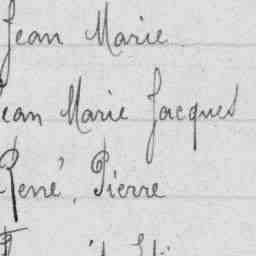 Jean Marie
Jean Marie Jacques
René, Pierre